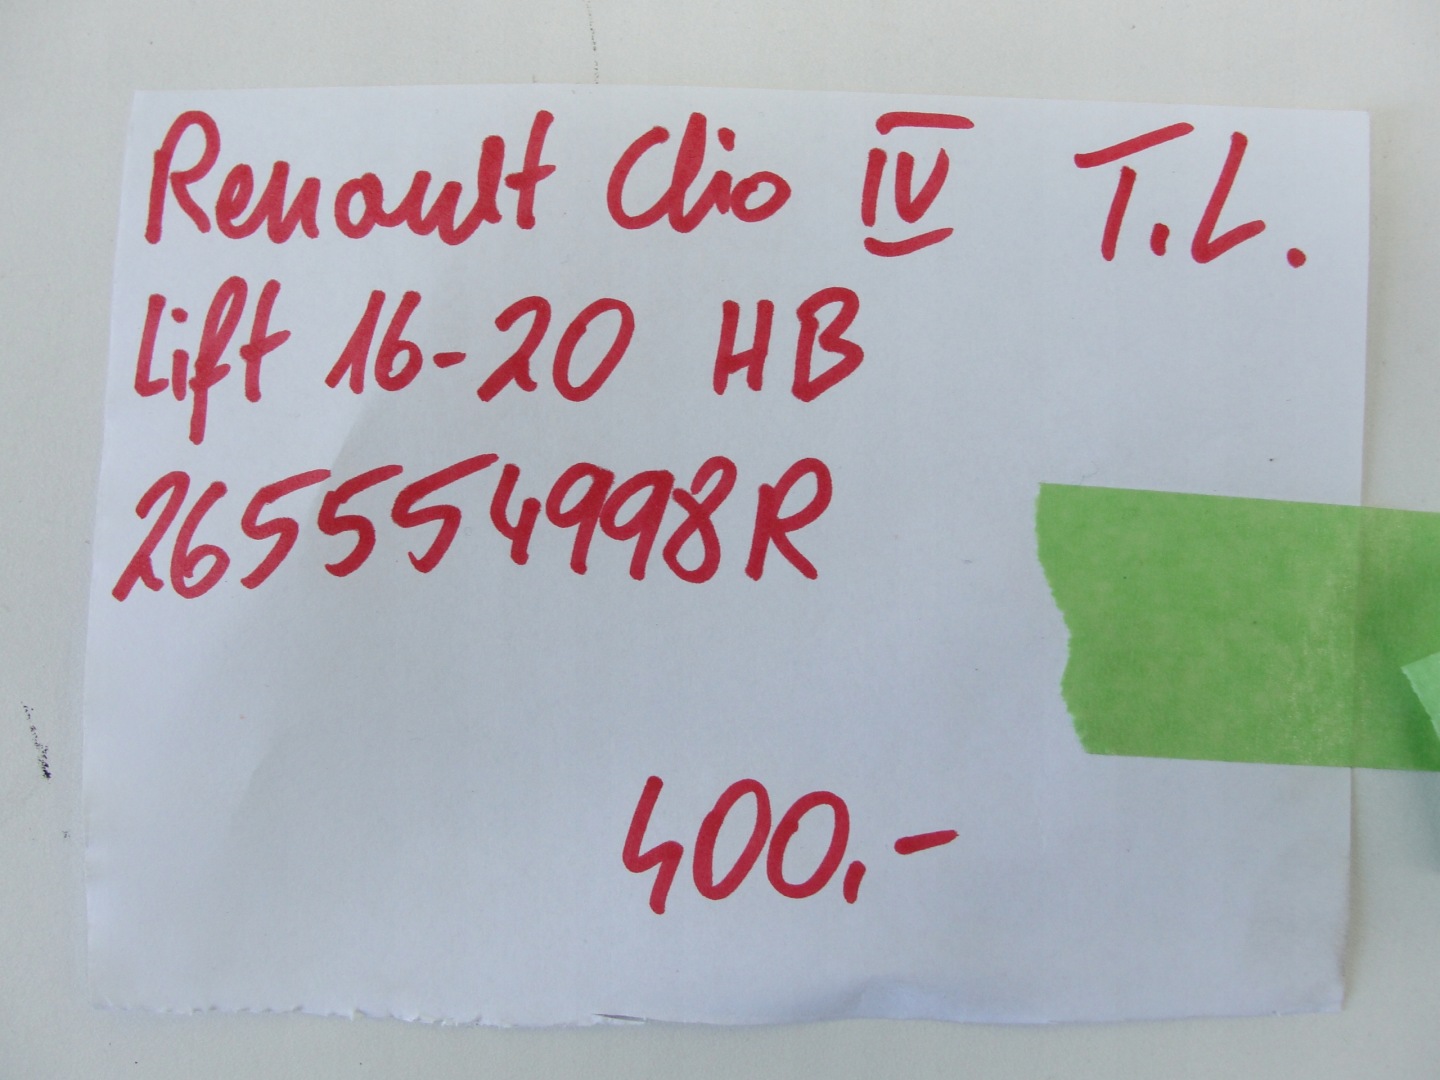 Renault Clio IV T.L.
Lift 16-20 HB
265554998R
400,-